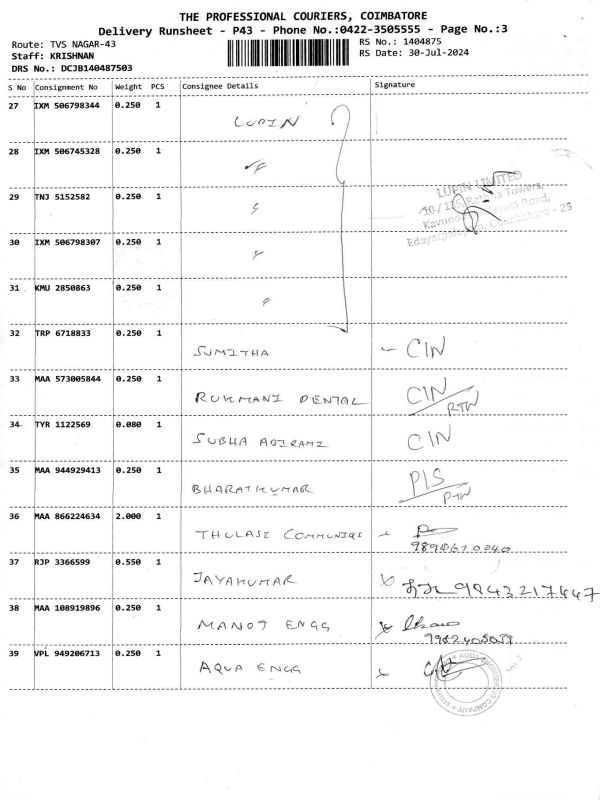 THE PROFESSIONAL COURIERS, COIMBATORE
Delivery Runsheet - P43 - Phone No.:0422-3505555 - Page No.:3
Route: TVS NAGAR-43 RS No.: 1404875
Staff: KRISHNAN RS Date: 30-Jul-2024
DRS No.: DCJB140487503
S No Consignment No Weight PCS Consignee Details Signature
27 IXM 506798344 0.250 1 LUPIN
28 IXM 506745328 0.250 1 "
29 TNJ 5152582 0.250 1 "
LUPIN LIMITED
Towers,
Road,
- 25
30 IXM 506798307 0.250 1 "
31 KMU 2850863 0.250 1 "
32 TRP 6718833 0.250 1 SUMITHA CIN
33 MAA 573005844 0.250 1 RUKMANI DENTAL CIN/RTN
34 TYR 1122569 0.080 1 SUBHA ABIRAMI CIN
35 MAA 944929413 0.250 1 BHARATKUMAR
36 MAA 866224634 2.000 1 THULASI
37 RJP 3366599 0.550 1 JAYAKUMAR 9843217447
38 MAA 108919896 0.250 1 MANOJ ENGG
39 VPL 949206713 0.250 1 AQUA ENGG